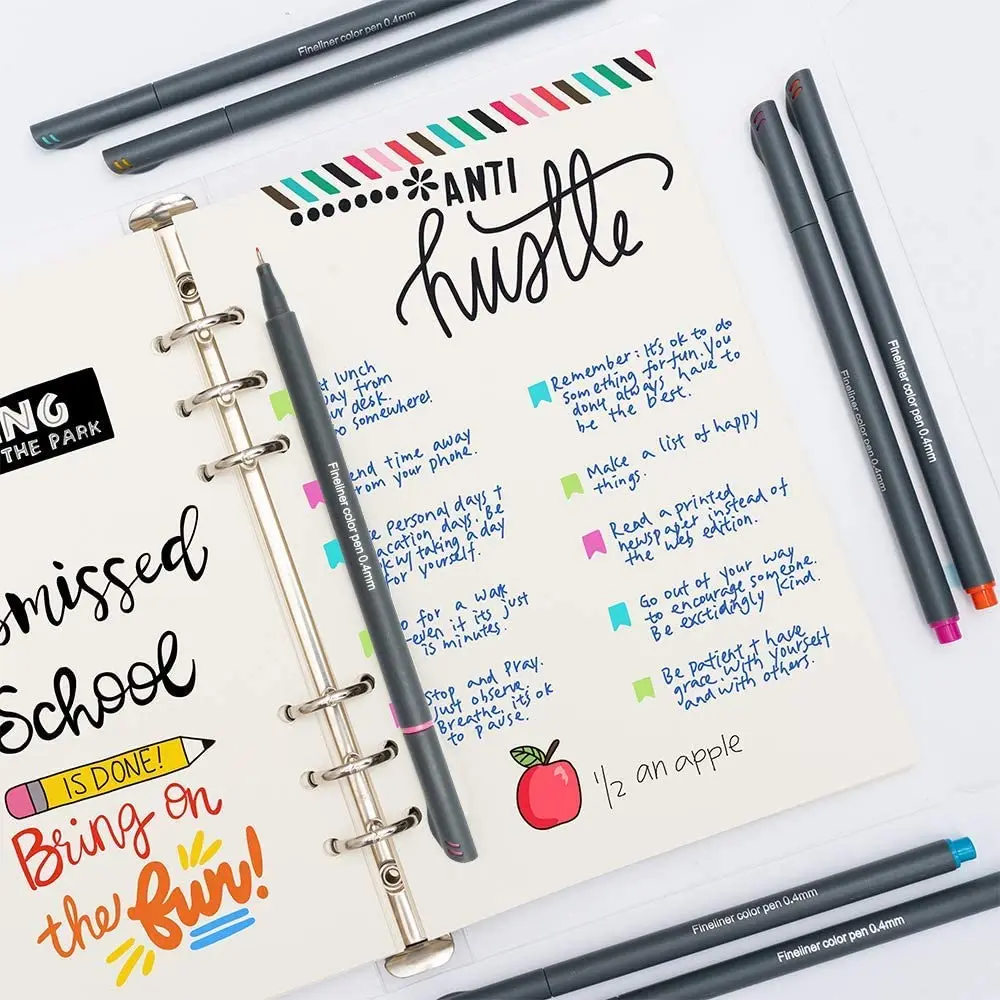 Fineliner color pen 0.4mm
ANTI
hustle
lunch
from
desk.
somewhere!
time away
from your phone.
Personal days +
days. Be
taking a day
for yourself.
for a walk
even if its just
minutes.
Stop and Pray.
Just observe.
Breathe. its ok
to pause.
Remember: It's ok to do
something for fun. You
dont always have to
be the best.
Make a list of happy
things.
Read a printed
newspaper instead of
the web edition.
Go out of your way
to encourage someone.
Be exctidingly kind.
Be patient + have
grace with yourself
and with others.
1/2 an apple
NG
THE PARK
missed
School
IS DONE!
Bring on
the fun!
Fineliner color pen 0.4mm
Fineliner color pen 0.4mm
Fineliner color pen 0.4mm
Fineliner color pen 0.4mm
Fineliner color pen 0.4mm